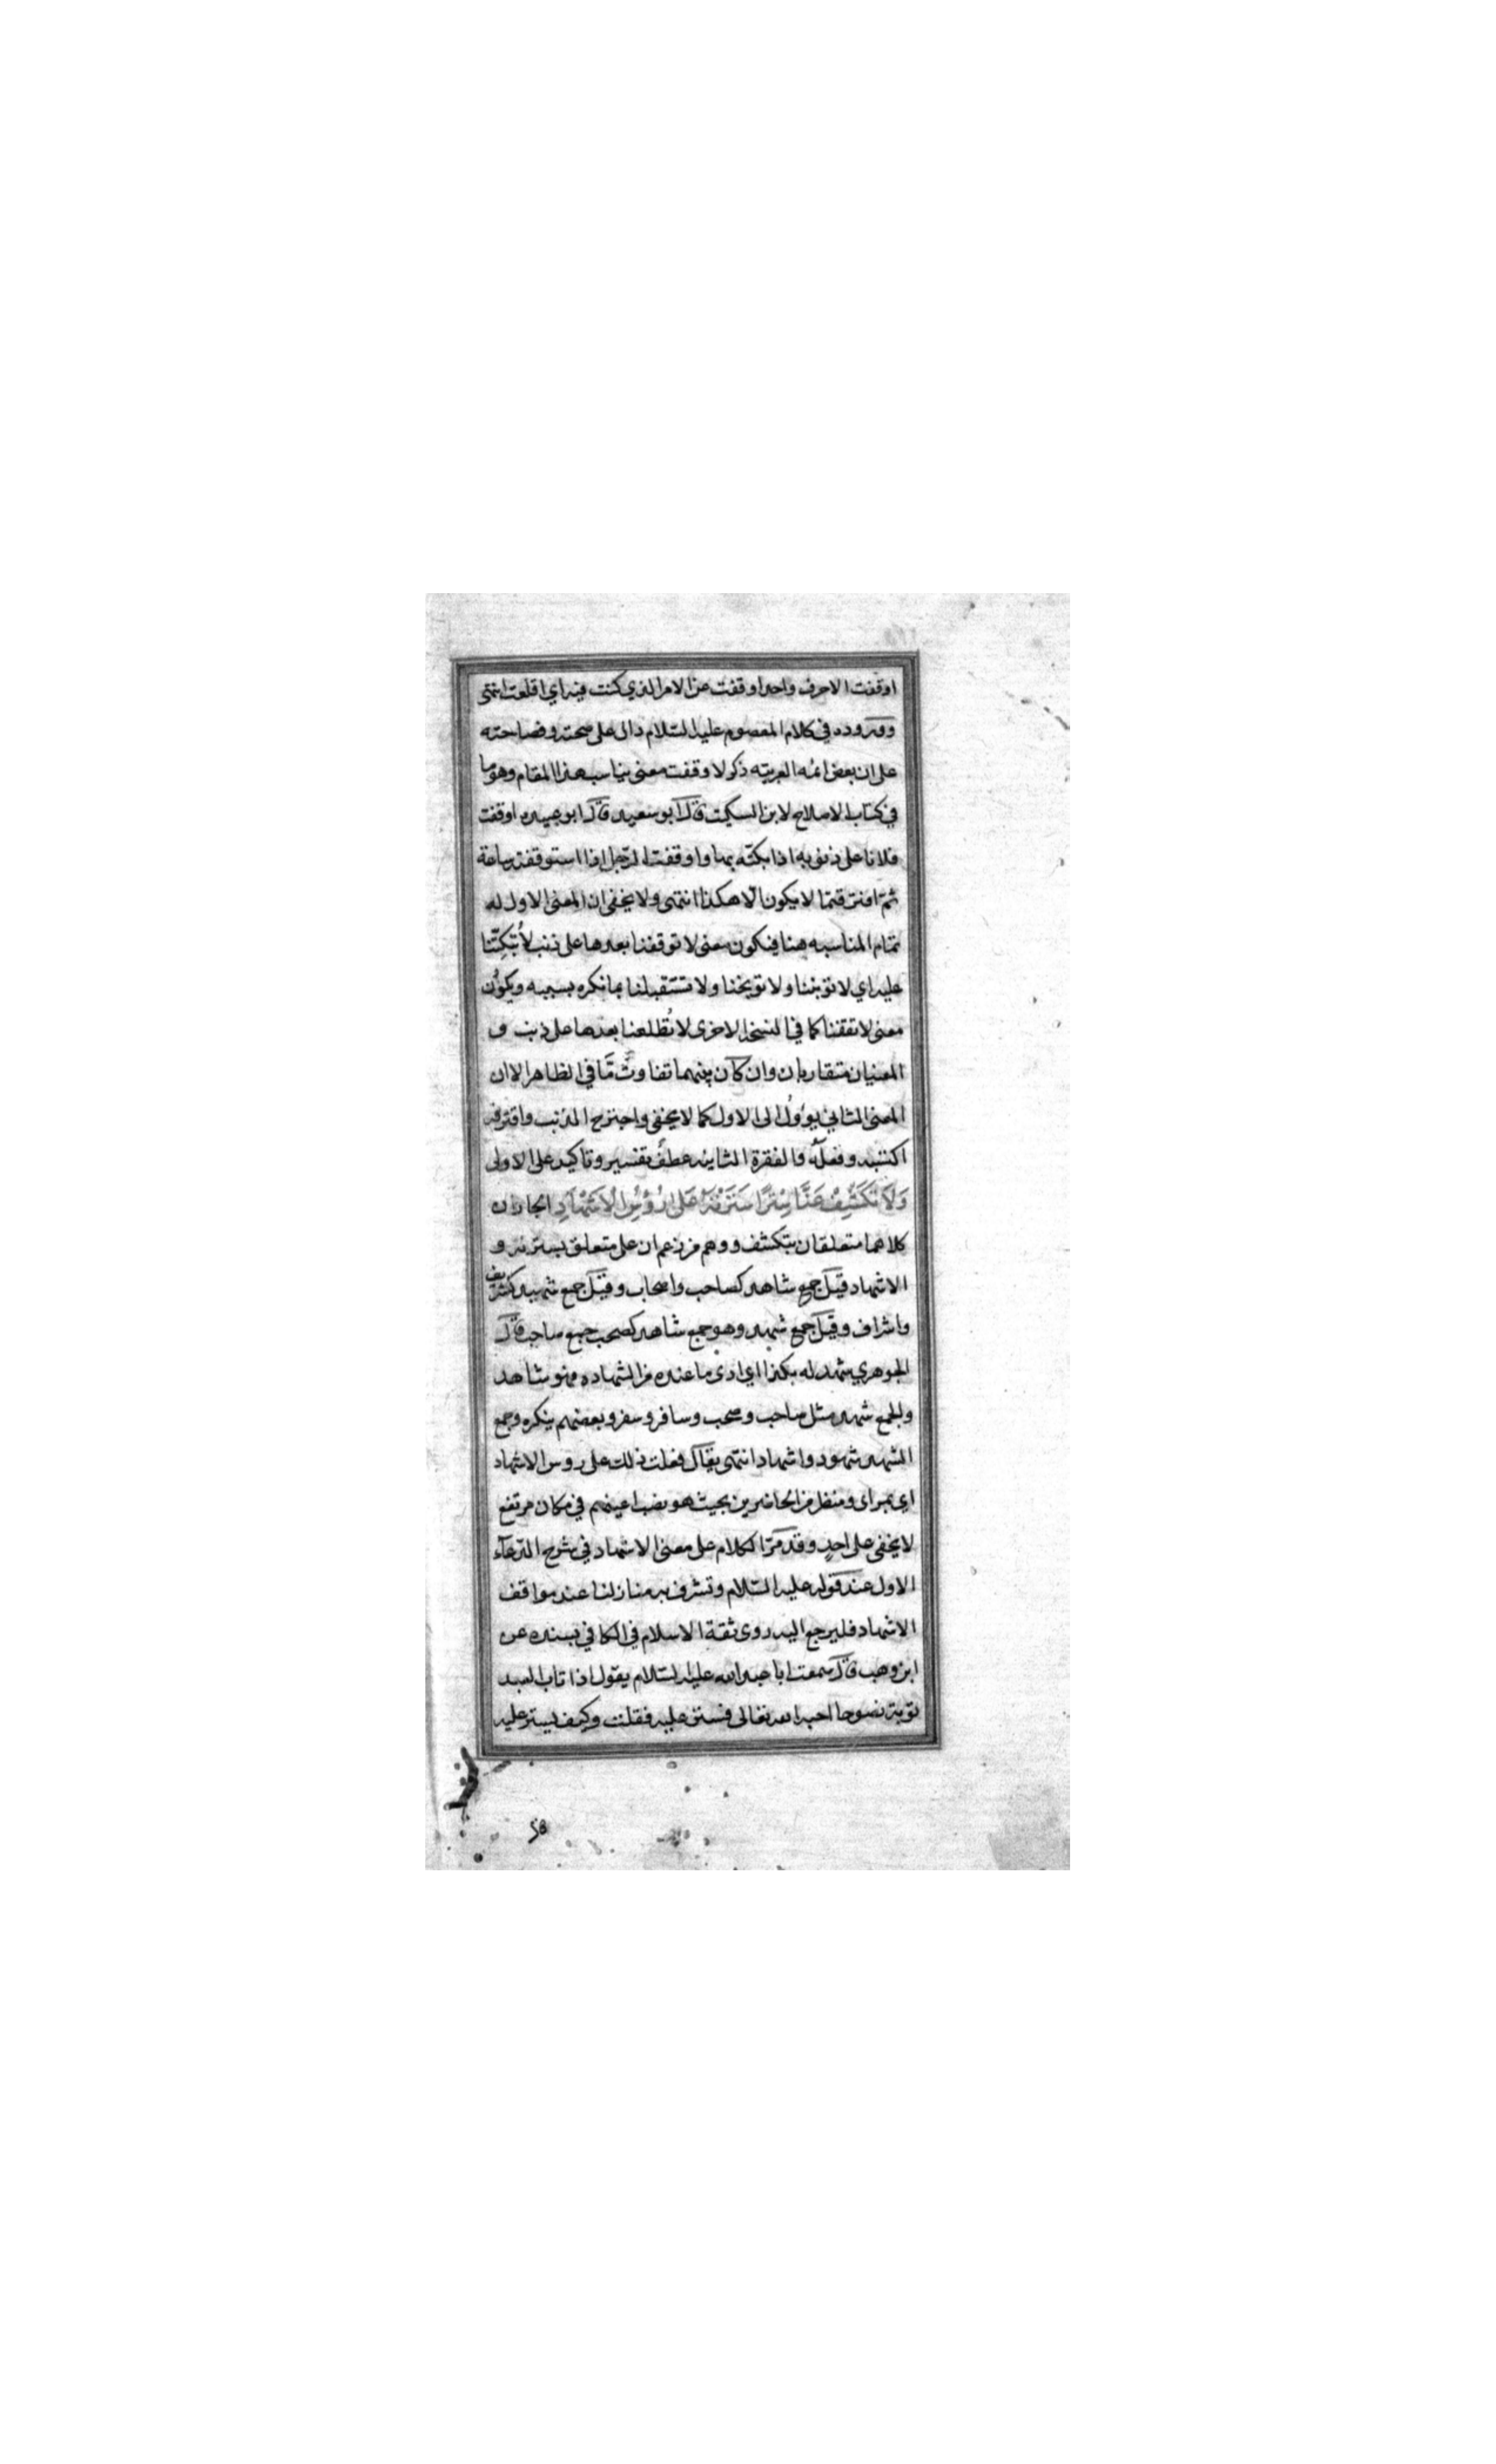 اوقفت الا حرف واحد اوقفت عن الامر الذي كنت فيه اي اقلعت انتهى
وورود ه في كلام المعصوم عليه السلام دال على صحته وفصاحته
على ان بعض ائمه العربيه ذكر لاوقفت معنى يناسب هذا المقام وهو ما
في كتاب الاصلاح لابن السكيت قال ابو سعيد قال ابو عبيده اوقفت
فلانا على ذنوبه اذا بكته بها واوقفت الرجل اذا استوقفته ساعة
ثم افترقتما لا يكون الا هكذا انتهى ولا يخفى ان المعنى الاول له
تمام المناسبه هنا فيكون معنى لا توقفنا بعدها على ذنب لا تُبَكِّتنا
عليه اي لا تؤنبنا ولا توبخنا ولا تستقبلنا بما نكره بسببه ويكون
معنى لا تقفنا كما في النسخه الاخرى لا تُطلعنا بعدها على ذنب و
المعنيان متقاربان وان كان بينهما تفاوتٌ مَّا في الظاهر الا ان
المعنى الثاني يؤولُ الى الاول كما لا يخفى واجترح الذنب واقترفه
اكتسبه وفعله فالفقرة الثانيه عطف تفسير وتاكيد على الاولى
وَلَا تَكْشِفْ عَنَّا سِتْرًا سَتَرْتَهُ عَلَى رُؤُسِ الْاَشْهَادِ الجاران
كلاهما متعلقان بتكشف ووهم من زعم ان على متعلق بسترته و
الاشهاد قيل جمع شاهد كصاحب واصحاب وقيل جمع شهيد كشريف
واشراف وقيل جمع شهد وهو جمع شاهد كصحب جمع صاحب قال
الجوهري شهد له بكذا اي ادى ما عنده من الشهاده فهو شاهد
والجمع شهد مثل صاحب وصحب وسافر وسفر وبعضهم ينكره وجمع
الشهد شهود واشهاد انتهى يقال فعلت ذلك على روس الاشهاد
اي بمراى ومنظر من الحاضرين بحيث هو نصب اعينهم في مكان مرتفع
لا يخفى على احدٍ وقد مَرّ الكلام على معنى الاشهاد في شرح الدعآء
الاول عند قوله عليه السلام وتشرف به منازلنا عند مواقف
الاشهاد فليرجع اليه روى ثقة الاسلام في الكافي بسنده عن
ابن وهب قال سمعت ابا عبد الله عليه السلام يقول اذا تاب العبد
توبة نصوحا احبه الله تعالى فستر عليه فقلت وكيف يستر عليه